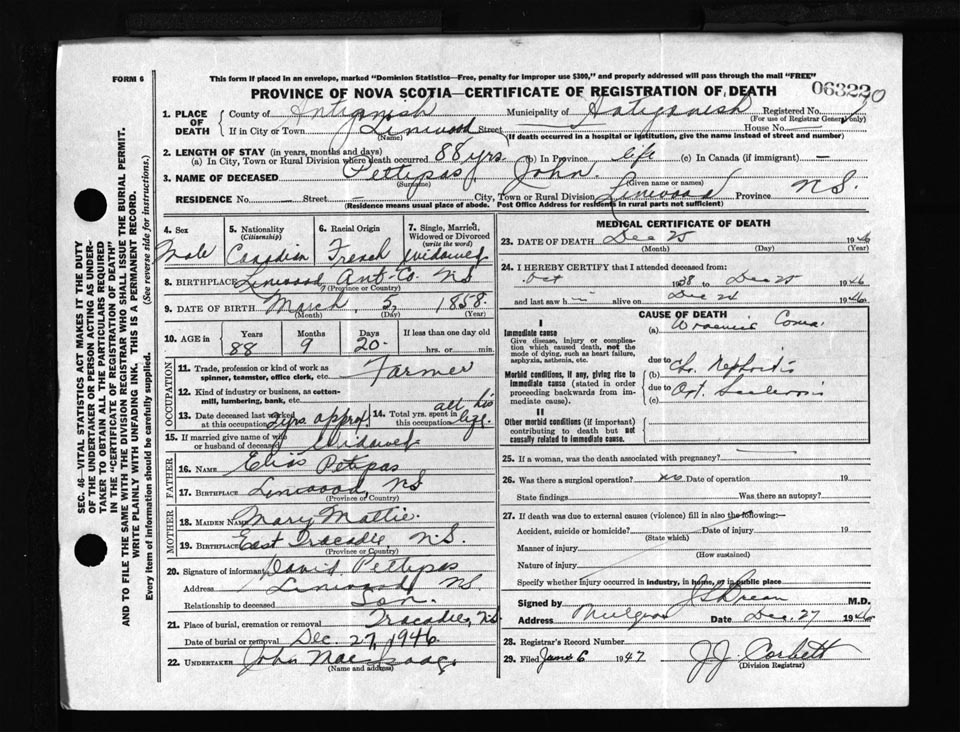 FORM 6
This form if placed in an envelope, marked "Dominion Statistics—Free, penalty for improper use $300," and properly addressed will pass through the mail "FREE"
PROVINCE OF NOVA SCOTIA—CERTIFICATE OF REGISTRATION OF DEATH
063220
1. PLACE OF DEATH
County of Antigonish Municipality of Antigonish Registered No.
(For use of Registrar General only)
If in City or Town Linwood Street House No.
(Name) (If death occurred in a hospital or institution, give the name instead of street and number)
2. LENGTH OF STAY (in years, months and days)
(a) In City, Town or Rural Division where death occurred 88 yrs. (b) In Province life (c) In Canada (if immigrant) —
3. NAME OF DECEASED Pettipas John
(Surname) (Given name or names)
RESIDENCE No. — Street City, Town or Rural Division Linwood Province N.S.
(Residence means usual place of abode. Post Office Address for residents in rural parts not sufficient)
SEC. 46—VITAL STATISTICS ACT MAKES IT THE DUTY
OF THE UNDERTAKER OR PERSON ACTING AS UNDER-
TAKER TO OBTAIN ALL THE PARTICULARS REQUIRED
IN THE "CERTIFICATE OF REGISTRATION OF DEATH"
AND TO FILE THE SAME WITH THE DIVISION REGISTRAR WHO SHALL ISSUE THE BURIAL PERMIT.
WRITE PLAINLY WITH UNFADING INK. THIS IS A PERMANENT RECORD.
Every item of information should be carefully supplied. (See reverse side for instructions.)
4. Sex
Male
5. Nationality
(Citizenship)
Canadian
6. Racial Origin
French
7. Single, Married, Widowed or Divorced
(write the word)
Widowed
8. BIRTHPLACE Linwood Ant. Co. N.S.
(Province or Country)
9. DATE OF BIRTH March 5, 1858.
(Month) (Day) (Year)
10. AGE in
Years Months Days If less than one day old
88 9 20 hrs. or min.
OCCUPATION
11. Trade, profession or kind of work as
spinner, teamster, office clerk, etc. Farmer
12. Kind of industry or business, as cotton-
mill, lumbering, bank, etc.
13. Date deceased last worked
at this occupation 2 yrs. approx.
14. Total yrs. spent in
this occupation all his life.
15. If married give name of wife
or husband of deceased Widowed
FATHER
16. Name Elias Petipas
17. Birthplace Linwood, N.S.
(Province or Country)
MOTHER
18. Maiden Name Mary Mattie
19. Birthplace East Tracadie, N.S.
(Province or Country)
20. Signature of informant David Pettipas
Address Linwood N.S.
Relationship to deceased Son.
21. Place of burial, cremation or removal Tracadie, N.S.
Date of burial or removal Dec. 27, 1946
22. UNDERTAKER John MacIsaac
(Name and address)
MEDICAL CERTIFICATE OF DEATH
23. DATE OF DEATH Dec 25 1946
(Month) (Day)
24. I HEREBY CERTIFY that I attended deceased from:
Oct 1938 to Dec 25 1946
and last saw him alive on Dec 24 1946
CAUSE OF DEATH
I
Immediate cause
Give disease, injury or complica-
tion which caused death, not the
mode of dying, such as heart failure,
asphyxia, asthenia, etc.
(a) Uraemic Coma
due to
Morbid conditions, if any, giving rise to
immediate cause (stated in order
proceeding backwards from im-
mediate cause).
(b) Chr. Nephritis
due to
(c) Art. Sclerosis
II
Other morbid conditions (if important)
contributing to death but not
causally related to immediate cause.
25. If a woman, was the death associated with pregnancy?
26. Was there a surgical operation? no Date of operation 19
State findings Was there an autopsy?
27. If death was due to external causes (violence) fill in also the following:—
Accident, suicide or homicide? Date of injury 19
(State which)
Manner of injury
(How sustained)
Nature of injury
Specify whether injury occurred in industry, in home, or in public place
Signed by M.D.
Address Mulgrave Date Dec. 27 1946
28. Registrar's Record Number
29. Filed 6 1947 J.J. Corbett
(Division Registrar)